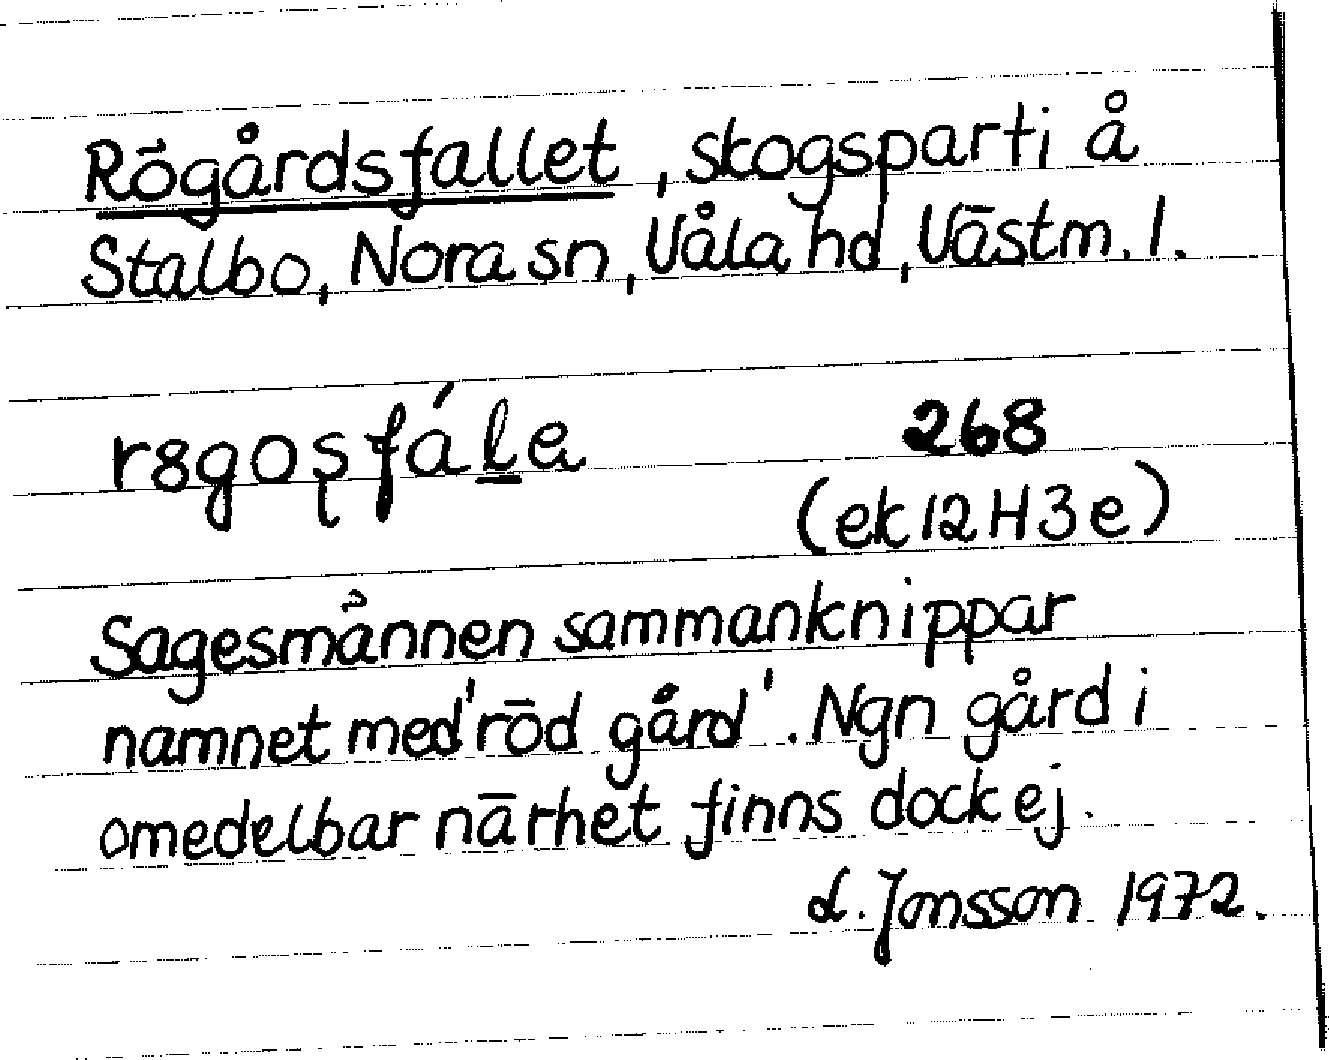 Rögårdsfallet, skogsparti å
Stalbo, Nora sn, Våla hd, Västm. l.
268
(ek 12 H 3 e)
Sagesmännen sammanknippar
namnet med 'röd gård'. Ngn gård i
omedelbar närhet finns dock ej.
Jonsson 1972.